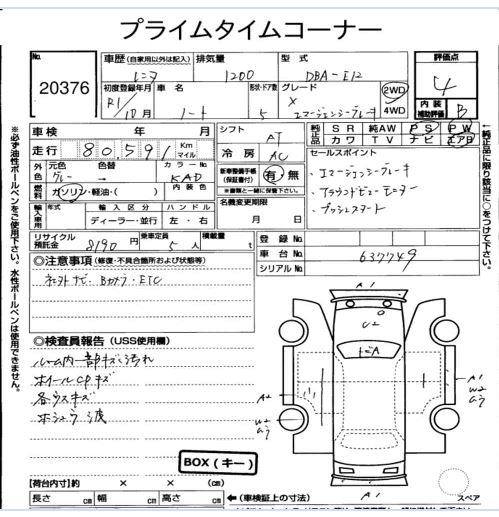 プライムタイムコーナー
No.
20376
車歴 (自家用以外は記入)
レンタ
排気量
1200
型式
DBA-E12
評価点
4
内装
補助評価
B
初度登録年月
R1/10月
車名
ノート
形状・ドア数
5
グレード
X
エマージェンシーブレーキ
2WD
4WD
車検 年 月
走行 80,591 Km マイル
シフト
AT
冷房
AC
純正品
SR 純AW PS PW
カワ TV ナビ エアB
外色
元色 色替 カラーNo.
グレー → KAD
燃料
ガソリン・軽油・( ) 内装色
新車整備手帳
(保証書付)
有・無
※書類と一緒に保管下さい。
セールスポイント
・エマージェンシーブレーキ
・アラウンドビューモニター
・プッシュスタート
輸入車用
年式 輸入区分 ハンドル
ディーラー・並行 左・右
名義変更期限
月 日
リサイクル
預託金
8190円
乗車定員
5人
積載量
t
登録No.
車台No.
637749
シリアルNo.
◎注意事項 (修復・不具合箇所および状態等)
Bカメラ・ETC
◎検査員報告 (USS使用欄)
ルーム内一部キズ汚れ
ホイールCPキズ
各ウスキズ
BOX(キー)
A1
U2
A2
W2
A1
W2
A1
スペア
【荷台内寸】約 × × (cm)
長さ cm 幅 cm 高さ cm
←(車検証上の寸法)
※必ず油性ボールペンをご使用下さい。水性ボールペンは使用できません。
←純正品に限り該当に○をつけて下さい。